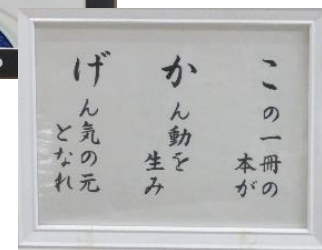 この一冊の
本が
かん動を
生み
げん気の元
となれ